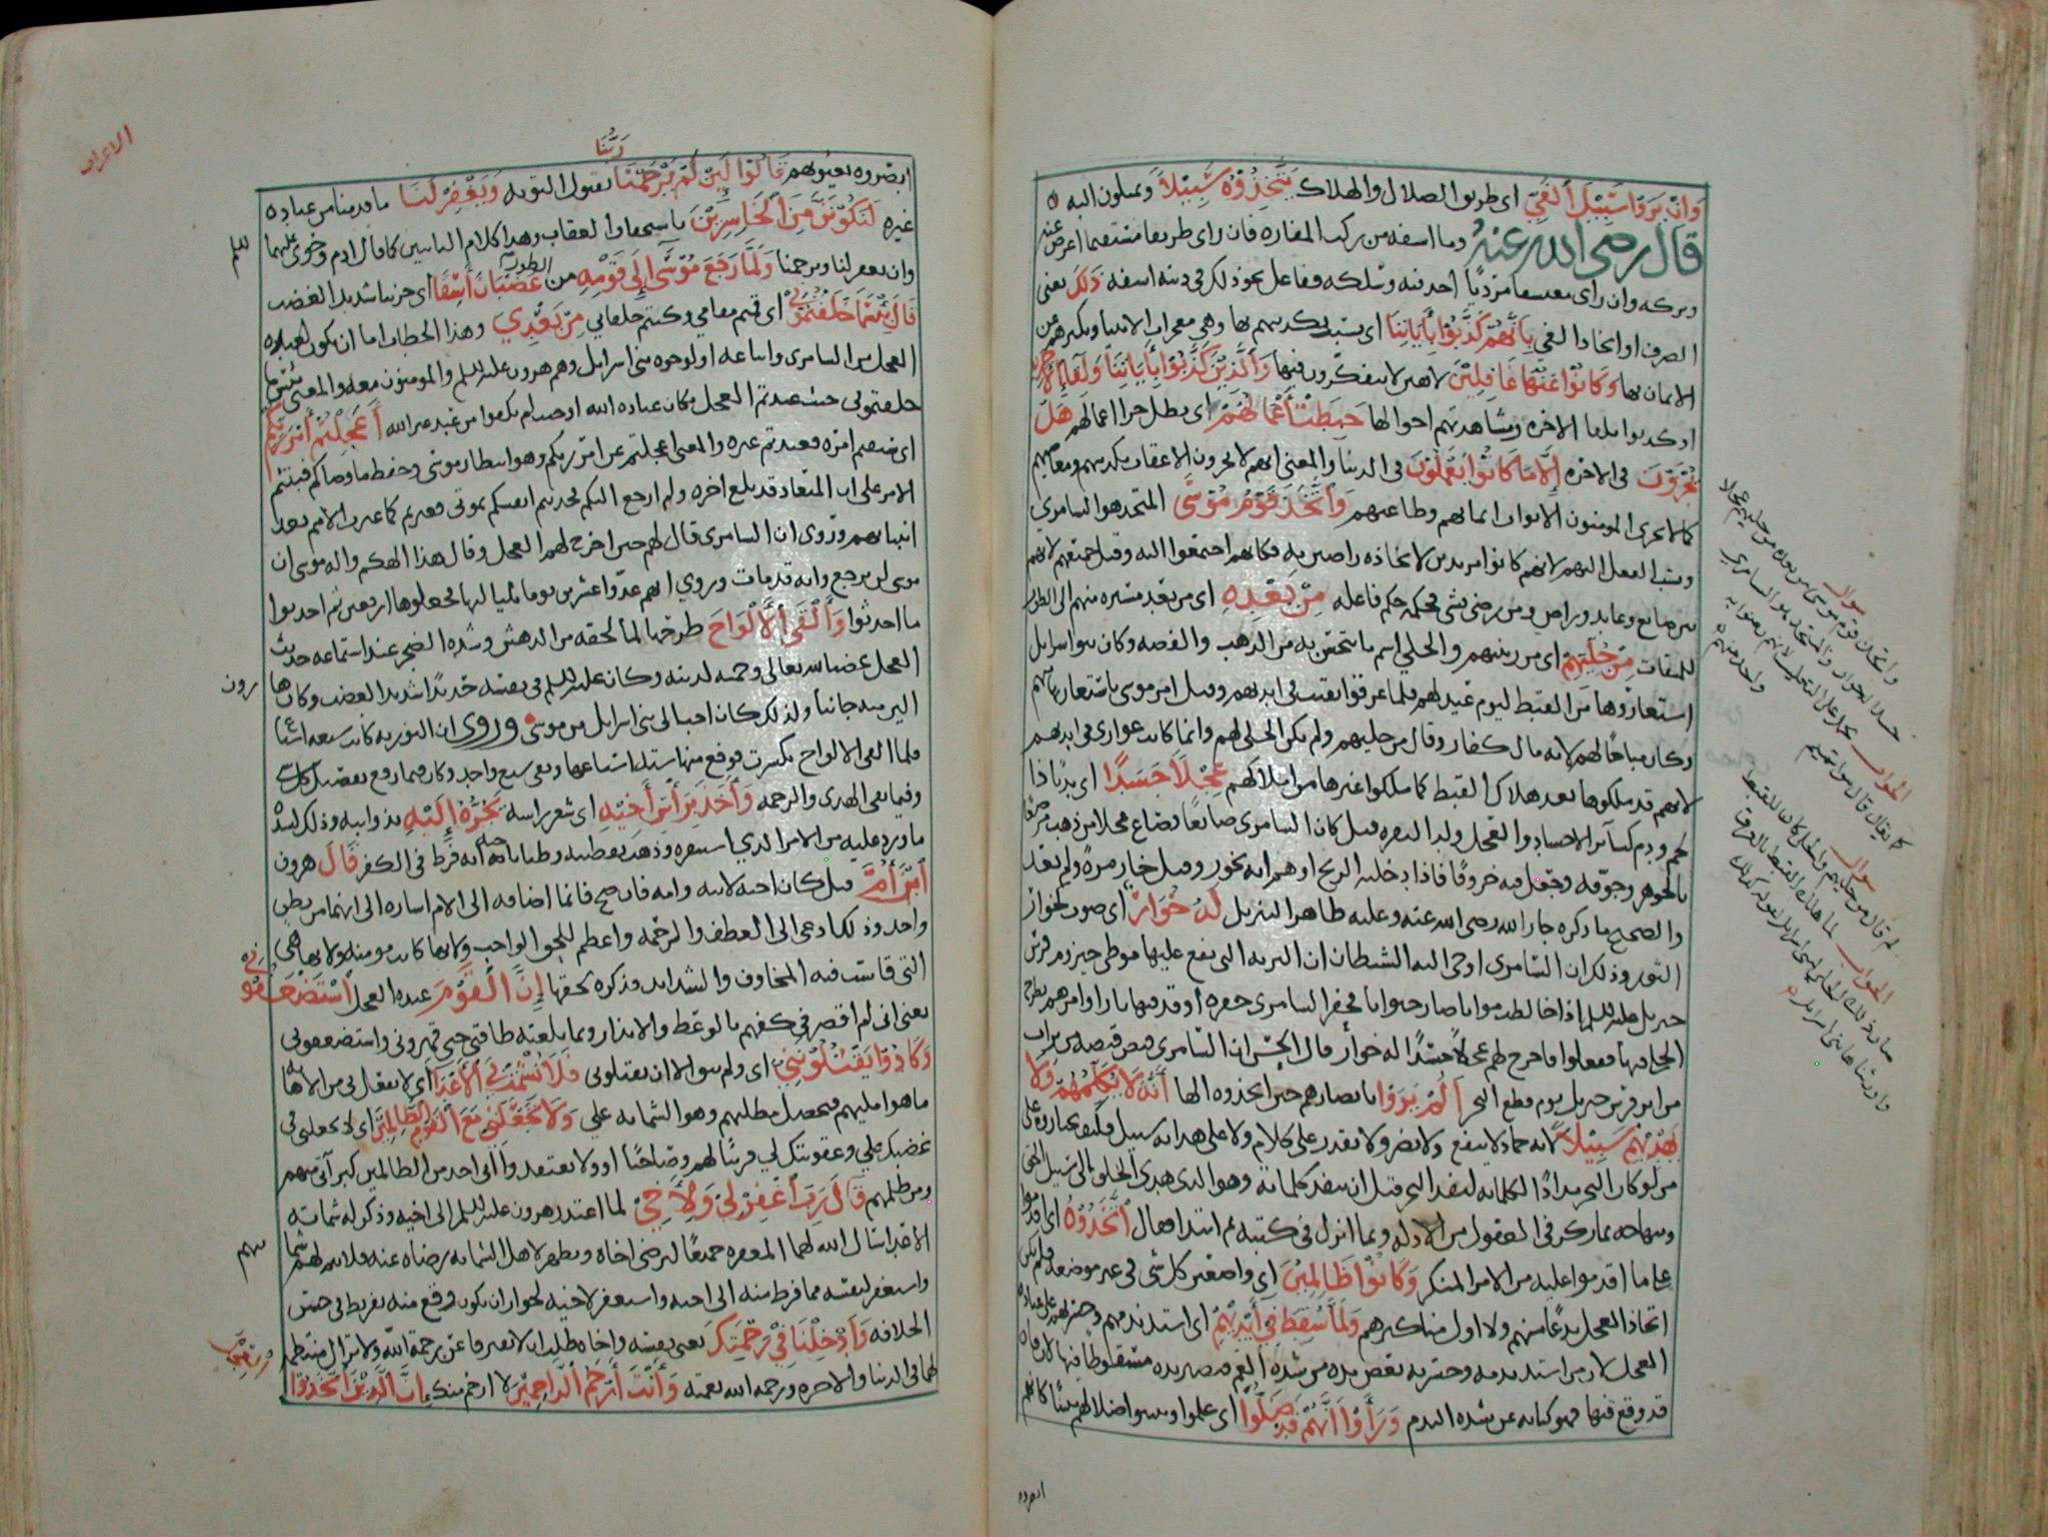 وَإِنْ يَرَوْا سَبِيلَ الْغَيِّ اى طريق الضلال والهلاك يَتَّخِذُوهُ سَبِيلًا ويميلون اليه
قال رضى الله عنه وما اسفه من ركب المفازه فان راى طريقا مستقيما اعرض عنه
وتركه وان راى معسفا مرديا اخذ فيه وسلكه ففاعل نحو ذلك فى دينه اسفه ذَلِكَ يعنى
الصرف او اتخاذ الغي بِأَنَّهُمْ كَذَّبُوا بِآيَاتِنَا اى بسبب تكذيبهم بها وهى معجزات الانبيا
الايمان بها وَكَانُوا عَنْهَا غَافِلِينَ لاهين لا يتفكرون فيها وَالَّذِينَ كَذَّبُوا بِآيَاتِنَا وَلِقَاءِ الْآخِرَةِ
او كذبوا بلقا الاخره ومشاهدتهم احوالها حَبِطَتْ أَعْمَالُهُمْ اى بطل جزا اعمالهم هَلْ
يُجْزَوْنَ فى الاخره إِلَّا مَا كَانُوا يَعْمَلُونَ فى الدنيا والمعنى انهم لا يجزون الا عقاب تكذيبهم ومعاصيهم
كما لا يجزى المومنون الا ثواب ايمانهم وطاعتهم وَاتَّخَذَ قَوْمُ مُوسَى المتخذ هو السامرى
ونسب الفعل اليهم لانهم كانوا مريدين لاتخاذه راضين به فكانهم اجتمعوا اليه وقيل جميعهم لانهم
بين صانع وعابد وراض ومن رضى بشى فحكمه حكم فاعله مِنْ بَعْدِهِ اى من بعد مسيره منهم الى الطور
للميقات مِنْ حُلِيِّهِمْ اى من زينتهم والحلى اسم ما يتحسن به من الذهب والفضه وكان بنوا اسرايل
استعاروها من القبط ليوم عيد لهم فلما غرقوا بقيت فى ايديهم وقيل امر موسى باستعارتها منهم
وكان مباحا لهم لانه مال كفار وقال من حليهم ولم يكن الحلى لهم وانما كانت عوارى فى ايديهم
لانهم قد ملكوها بعد هلاك القبط كما ملكوا غيرها من املاكهم عِجْلًا جَسَدًا اى بدنا ذا
لحم ودم كساير الاجساد والعجل ولد البقره قيل كان السامرى صايغا فصاغ عجلا من ذهب
بالجوهر وجوفه وجعل فيه خروقا فاذا دخلته الريح اوهم انه يخور وقيل خار مره ولم يعد
والصحيح ما ذكره جار الله رضى الله عنه وعليه ظاهر التنزيل لَهُ خُوَارٌ اى صوت كخوار
الثور وذلك ان السامرى اوحى اليه الشيطان ان التربه التى يقع عليها موطى حيزوم فرس
جبريل عليه السلم اذا خالطت مواتا صار حيوانا فحفر السامرى حفره اوقد فيها نارا وامرهم بطرح
الحلى فيها ففعلوا فاخرج لهم عجلا جسدا له خوار قال الحسن ان السامرى قبض قبضه من تراب
من اثر فرس جبريل يوم قطع البحر أَلَمْ يَرَوْا بابصارهم حين اتخذوه الها أَنَّهُ لَا يُكَلِّمُهُمْ وَلَا
يَهْدِيهِمْ سَبِيلًا لانه جماد لا ينفع ولا يضر ولا يقدر على كلام ولا على هدايه سبيل فكيف يختاروه على
من لو كان البحر مدادا لكلماته لنفد البحر قبل ان تنفد كلماته وهو الذى هدى الخلق الى سبيل الحق
ومنهاجه بما ركز فى العقول من الادله وبما انزل فى كتبه ثم ابتدا فقال اتَّخَذُوهُ اى اقدموا
على ما اقدموا عليه من الامر المنكر وَكَانُوا ظَالِمِينَ اى واضعين كل شى فى غير موضعه فلم يكن
اتخاذ العجل بدعا منهم ولا اول مناكيرهم وَلَمَّا سُقِطَ فِي أَيْدِيهِمْ اى اشتد ندمهم وحسرتهم على عباده
العجل لان من اشتد ندمه وحسرته يعض يده من شده الغم فتصير يده مسقوطا فيها لان فاه
قد وقع فيها فهو كنايه عن شده الندم وَرَأَوْا أَنَّهُمْ قَدْ ضَلُّوا اى علموا وتبينوا ضلالهم تبينا كانهم
سوال
واتخذ قوم موسى من بعده من حليهم عجلا
جسدا له خوار والمتخذ هو السامرى
الجواب
سوال
لم قال من حليهم والحلى كان للقبط
الجواب
الاعراف
رَبُّنَا
ابصروه بعيونهم قَالُوا لَئِنْ لَمْ يَرْحَمْنَا بقبول التوبه وَيَغْفِرْ لَنَا ما قدمنا من عباده
غيره لَنَكُونَنَّ مِنَ الْخَاسِرِينَ باستحقاق العقاب وهذا كلام التايبين كما قال ادم وحوى عليهما
السلم
وان لم تغفر لنا وترحمنا وَلَمَّا رَجَعَ مُوسَى إِلَى قَوْمِهِ من الطور غَضْبَانَ أَسِفًا اى حزينا شديد الغضب
قَالَ بِئْسَمَا خَلَفْتُمُونِي اى قمتم مقامى وكنتم خلفايى مِنْ بَعْدِي وهذا الخطاب اما ان يكون لعبده
العجل من السامرى واشياعه او لوجوه بنى اسرايل وهم هرون عليه السلم والمومنون معه والمعنى بئس ما
خلفتمونى حيث عبدتم العجل مكان عباده الله او حيث لم تكفوا من عبد غير الله أَعَجِلْتُمْ أَمْرَ رَبِّكُمْ
اى سبقتم امره فعبدتم غيره والمعنى اعجلتم عن امر ربكم وهو انتظار موسى وحفظ ما وصاكم فبنيتم
الامر على ان الميعاد قد بلغ اخره ولم ارجع اليكم فحدثتم انفسكم بموتى فغيرتم كما غيرت الامم بعد
انبيايهم وروى ان السامرى قال لهم حين اخرج لهم العجل وقال هذا الهكم واله موسى ان
موسى لن يرجع وانه قد مات وروى انهم عدوا عشرين يوما بلياليها فجعلوها اربعين ثم احدثوا
ما احدثوا وَأَلْقَى الْأَلْوَاحَ طرحها لما لحقه من الدهش وشده الضجر عند استماعه حديث
العجل غضبا لله تعالى وحميه لدينه وكان عليه السلم فى نفسه حديدا شديد الغضب وكان هرون
الين منه جانبا ولذلك كان احب الى بنى اسرايل من موسى وروى ان التوريه كانت سبعه اسباع
فلما القى الالواح تكسرت فرفع منها سته اسباعها وبقى سبع واحد وكان فيما رفع تفصيل كل شى
وفيما بقى الهدى والرحمه وَأَخَذَ بِرَأْسِ أَخِيهِ اى شعر راسه يَجُرُّهُ إِلَيْهِ بذوابته وذلك لشده
ما ورد عليه من الامر الذى استفزه وذهب بفطنته وظنا باخيه انه فرط فى الكفر قَالَ هرون
ابْنَ أُمَّ قيل كان اخاه لابيه وامه فان صح فانما اضافه الى الام اشاره الى انهما من بطن
واحد وذلك ادعى الى العطف والرحمه واعظم للحق الواجب ولانها كانت مومنه ولانها هى
التى قاست فيه المخاوف والشدايد فذكره بحقها إِنَّ الْقَوْمَ عبده العجل اسْتَضْعَفُونِي
يعنى انى لم اقصر فى كفهم بالوعظ والانذار وبما بلغته طاقتى حتى قهرونى واستضعفونى
وَكَادُوا يَقْتُلُونَنِي اى ولم يبق الا ان يقتلونى فَلَا تُشْمِتْ بِيَ الْأَعْدَاءَ اى لا تفعل بى من الاهانه
ما هو امنيتهم فيحصل مطلبهم وهو الشماته على وَلَا تَجْعَلْنِي مَعَ الْقَوْمِ الظَّالِمِينَ اى لا تجعلنى فى
غضبك على وعقوبتك لى قرينا لهم وصاحبا او ولا تعتقد انى احد من الظالمين كبراتى منهم
ومن ظلمهم قَالَ رَبِّ اغْفِرْ لِي وَلِأَخِي لما اعتذر هرون عليه السلم الى اخيه وذكر له شماته
الاعدا سال الله لهما المغفره جميعا ليرضى اخاه ويظهر لاهل الشماته رضاه عنه فلا تتم لهم شماتهم
واستغفر لنفسه مما فرط منه الى اخيه واستغفر لاخيه لجواز ان يكون وقع منه تفريط فى حسن
الخلافه وَأَدْخِلْنَا فِي رَحْمَتِكَ يعنى نفسه واخاه طلب ان لا يتفرقا عن رحمة الله ولا تزال منتظمه
لهما فى الدنيا والاخره ورحمه الله نعمته وَأَنْتَ أَرْحَمُ الرَّاحِمِينَ لا ارحم منك إِنَّ الَّذِينَ اتَّخَذُوا